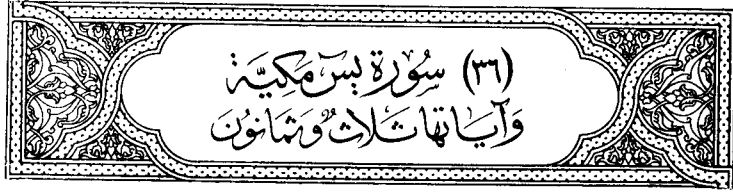 (٣٦) سُورَة يسَ مَكيَّة
وَآيَاتهَا ثَلَاثٌ وَثمَانُونَ